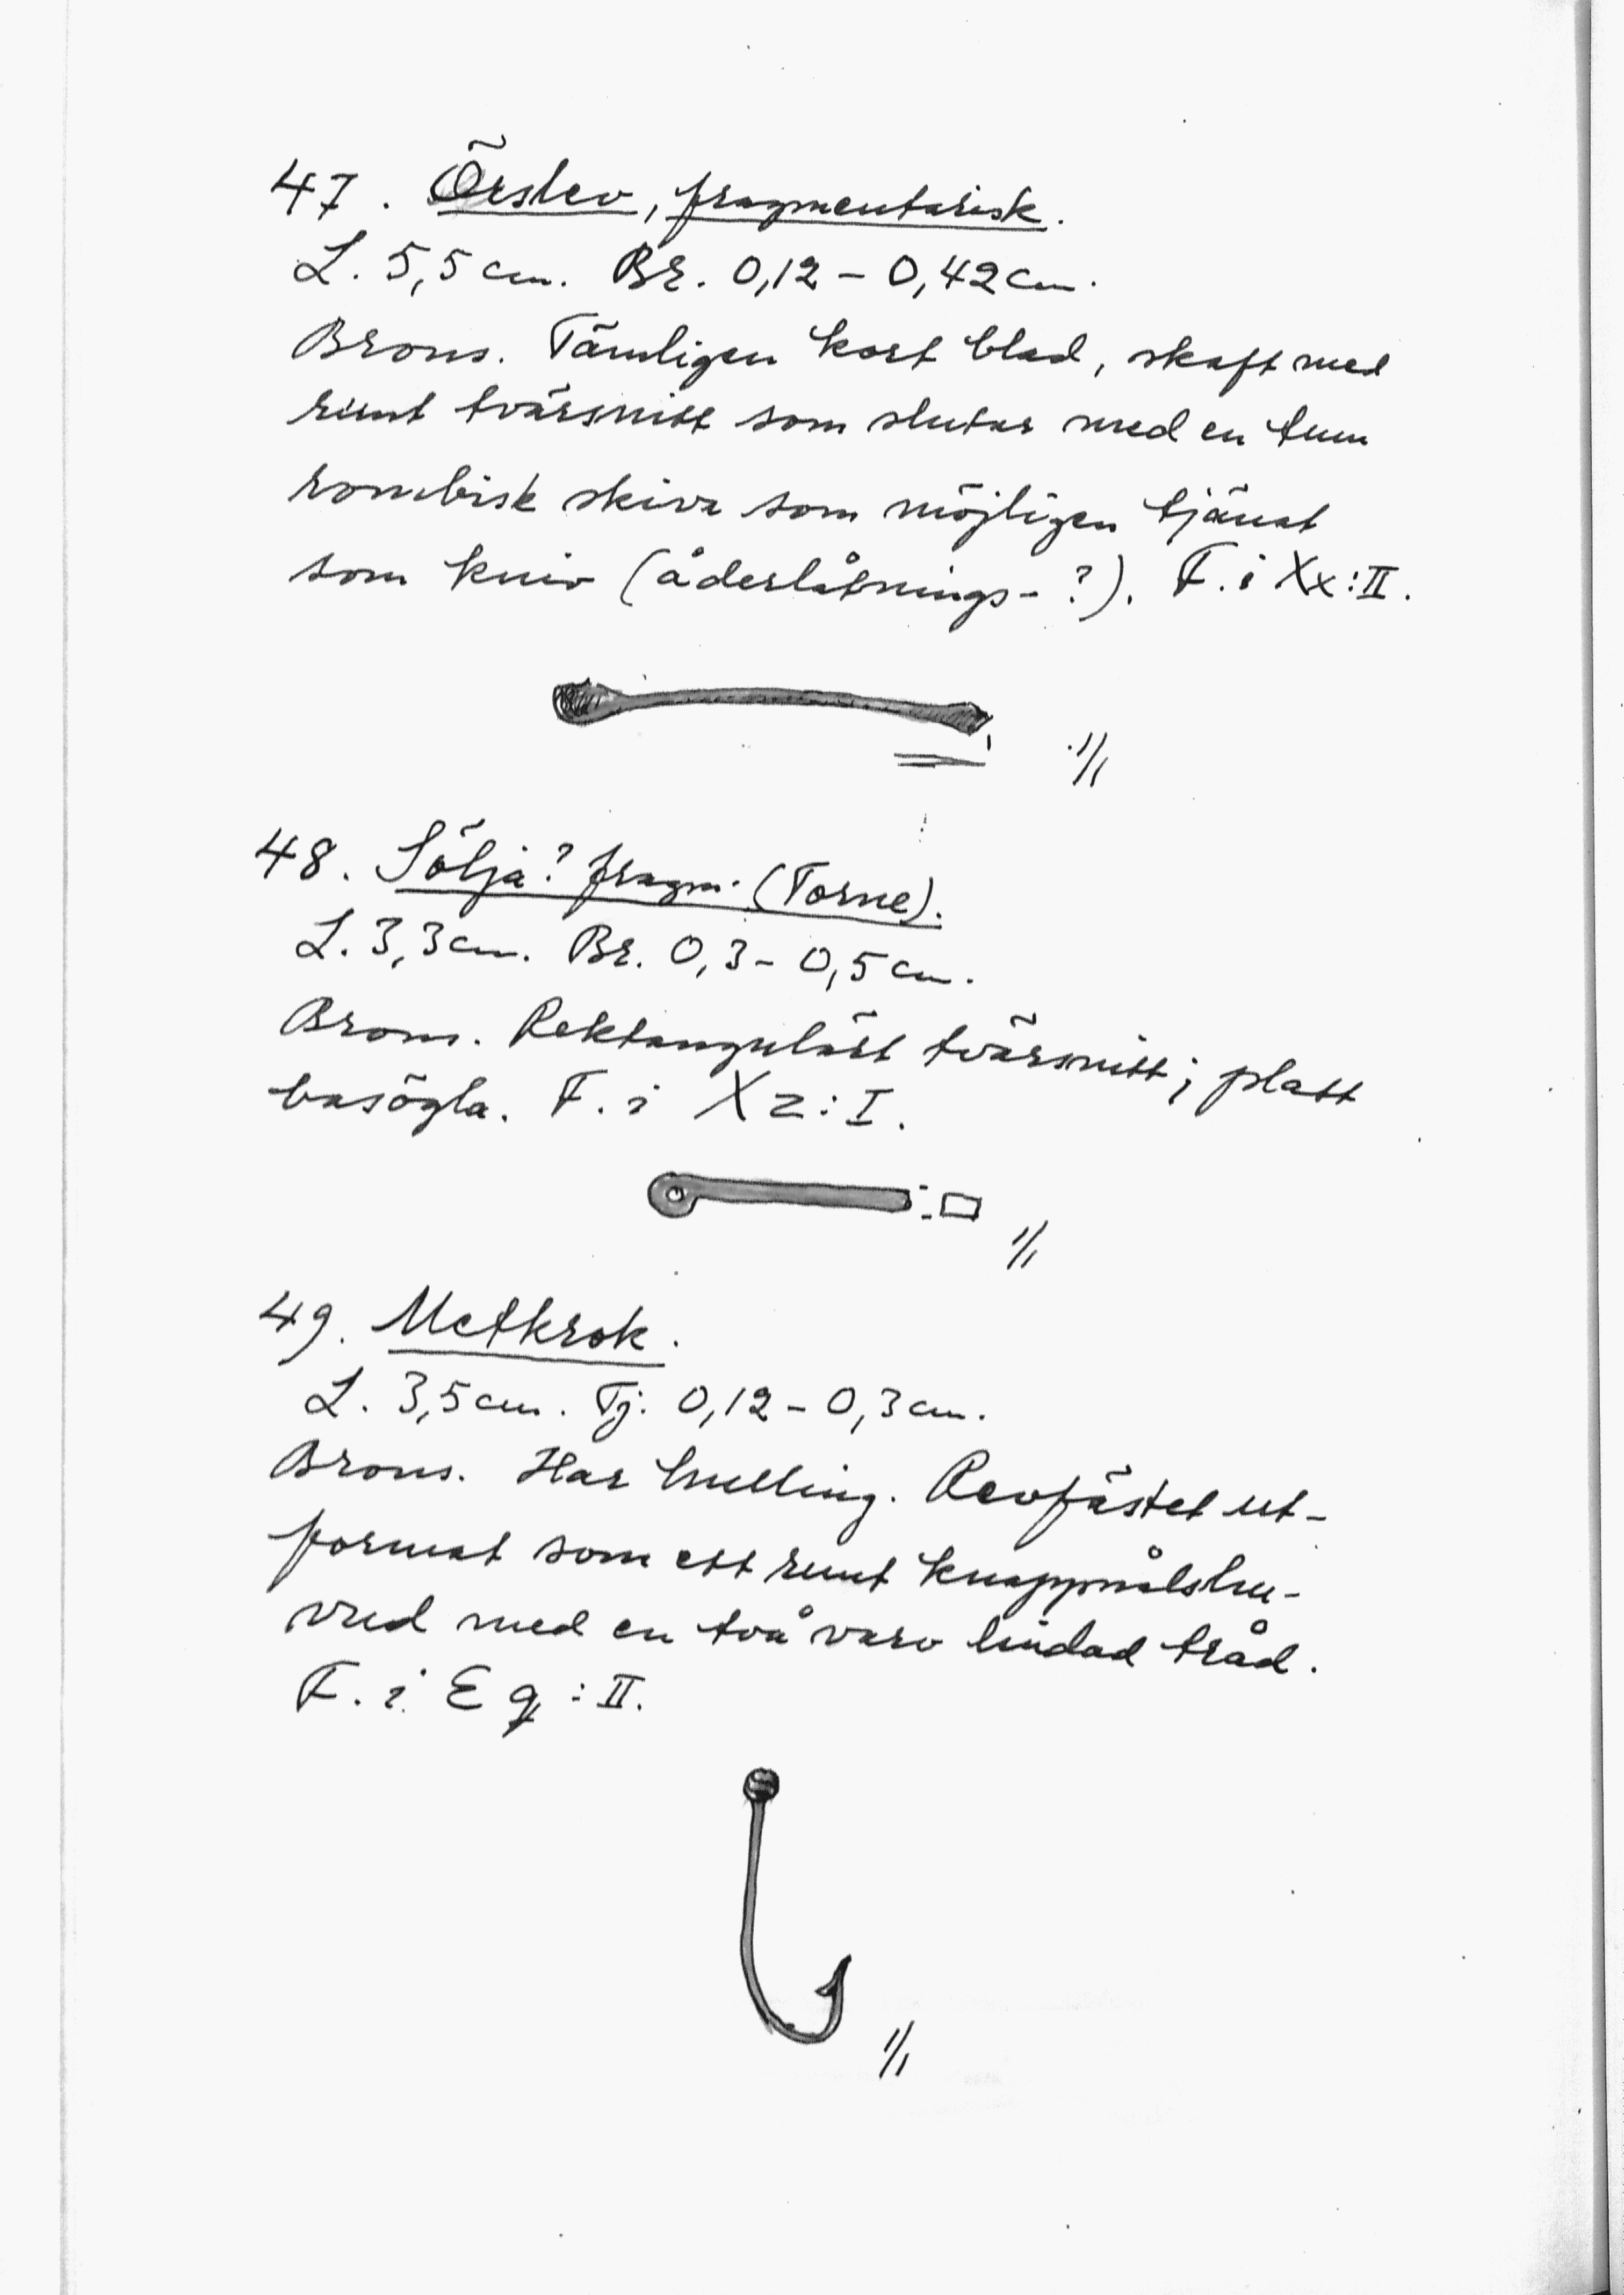 47. Örslev, fragmentarisk.
L. 5,5 cm. Br. 0,12 - 0,42 cm.
Brons. Tämligen kort blad, skaft med
runt tvärsnitt som slutar med en tunn
rombisk skiva som möjligen tjänat
som kniv (åderlåtnings- ?). F. i Xx:II.
1/1
48. Sölja? fragm. (Torne).
L. 3,3 cm. Br. 0,3 - 0,5 cm.
Brons. Rektangulärt tvärsnitt; platt
basögla. F. i Xz:I.
1/1
49. Metkrok.
L. 3,5 cm. Tj. 0,12 - 0,3 cm.
Brons. Har hulling. Revfästet ut-
format som ett runt knappnålshu-
vud med en två varv lindad tråd.
F. i Eq:II.
1/1